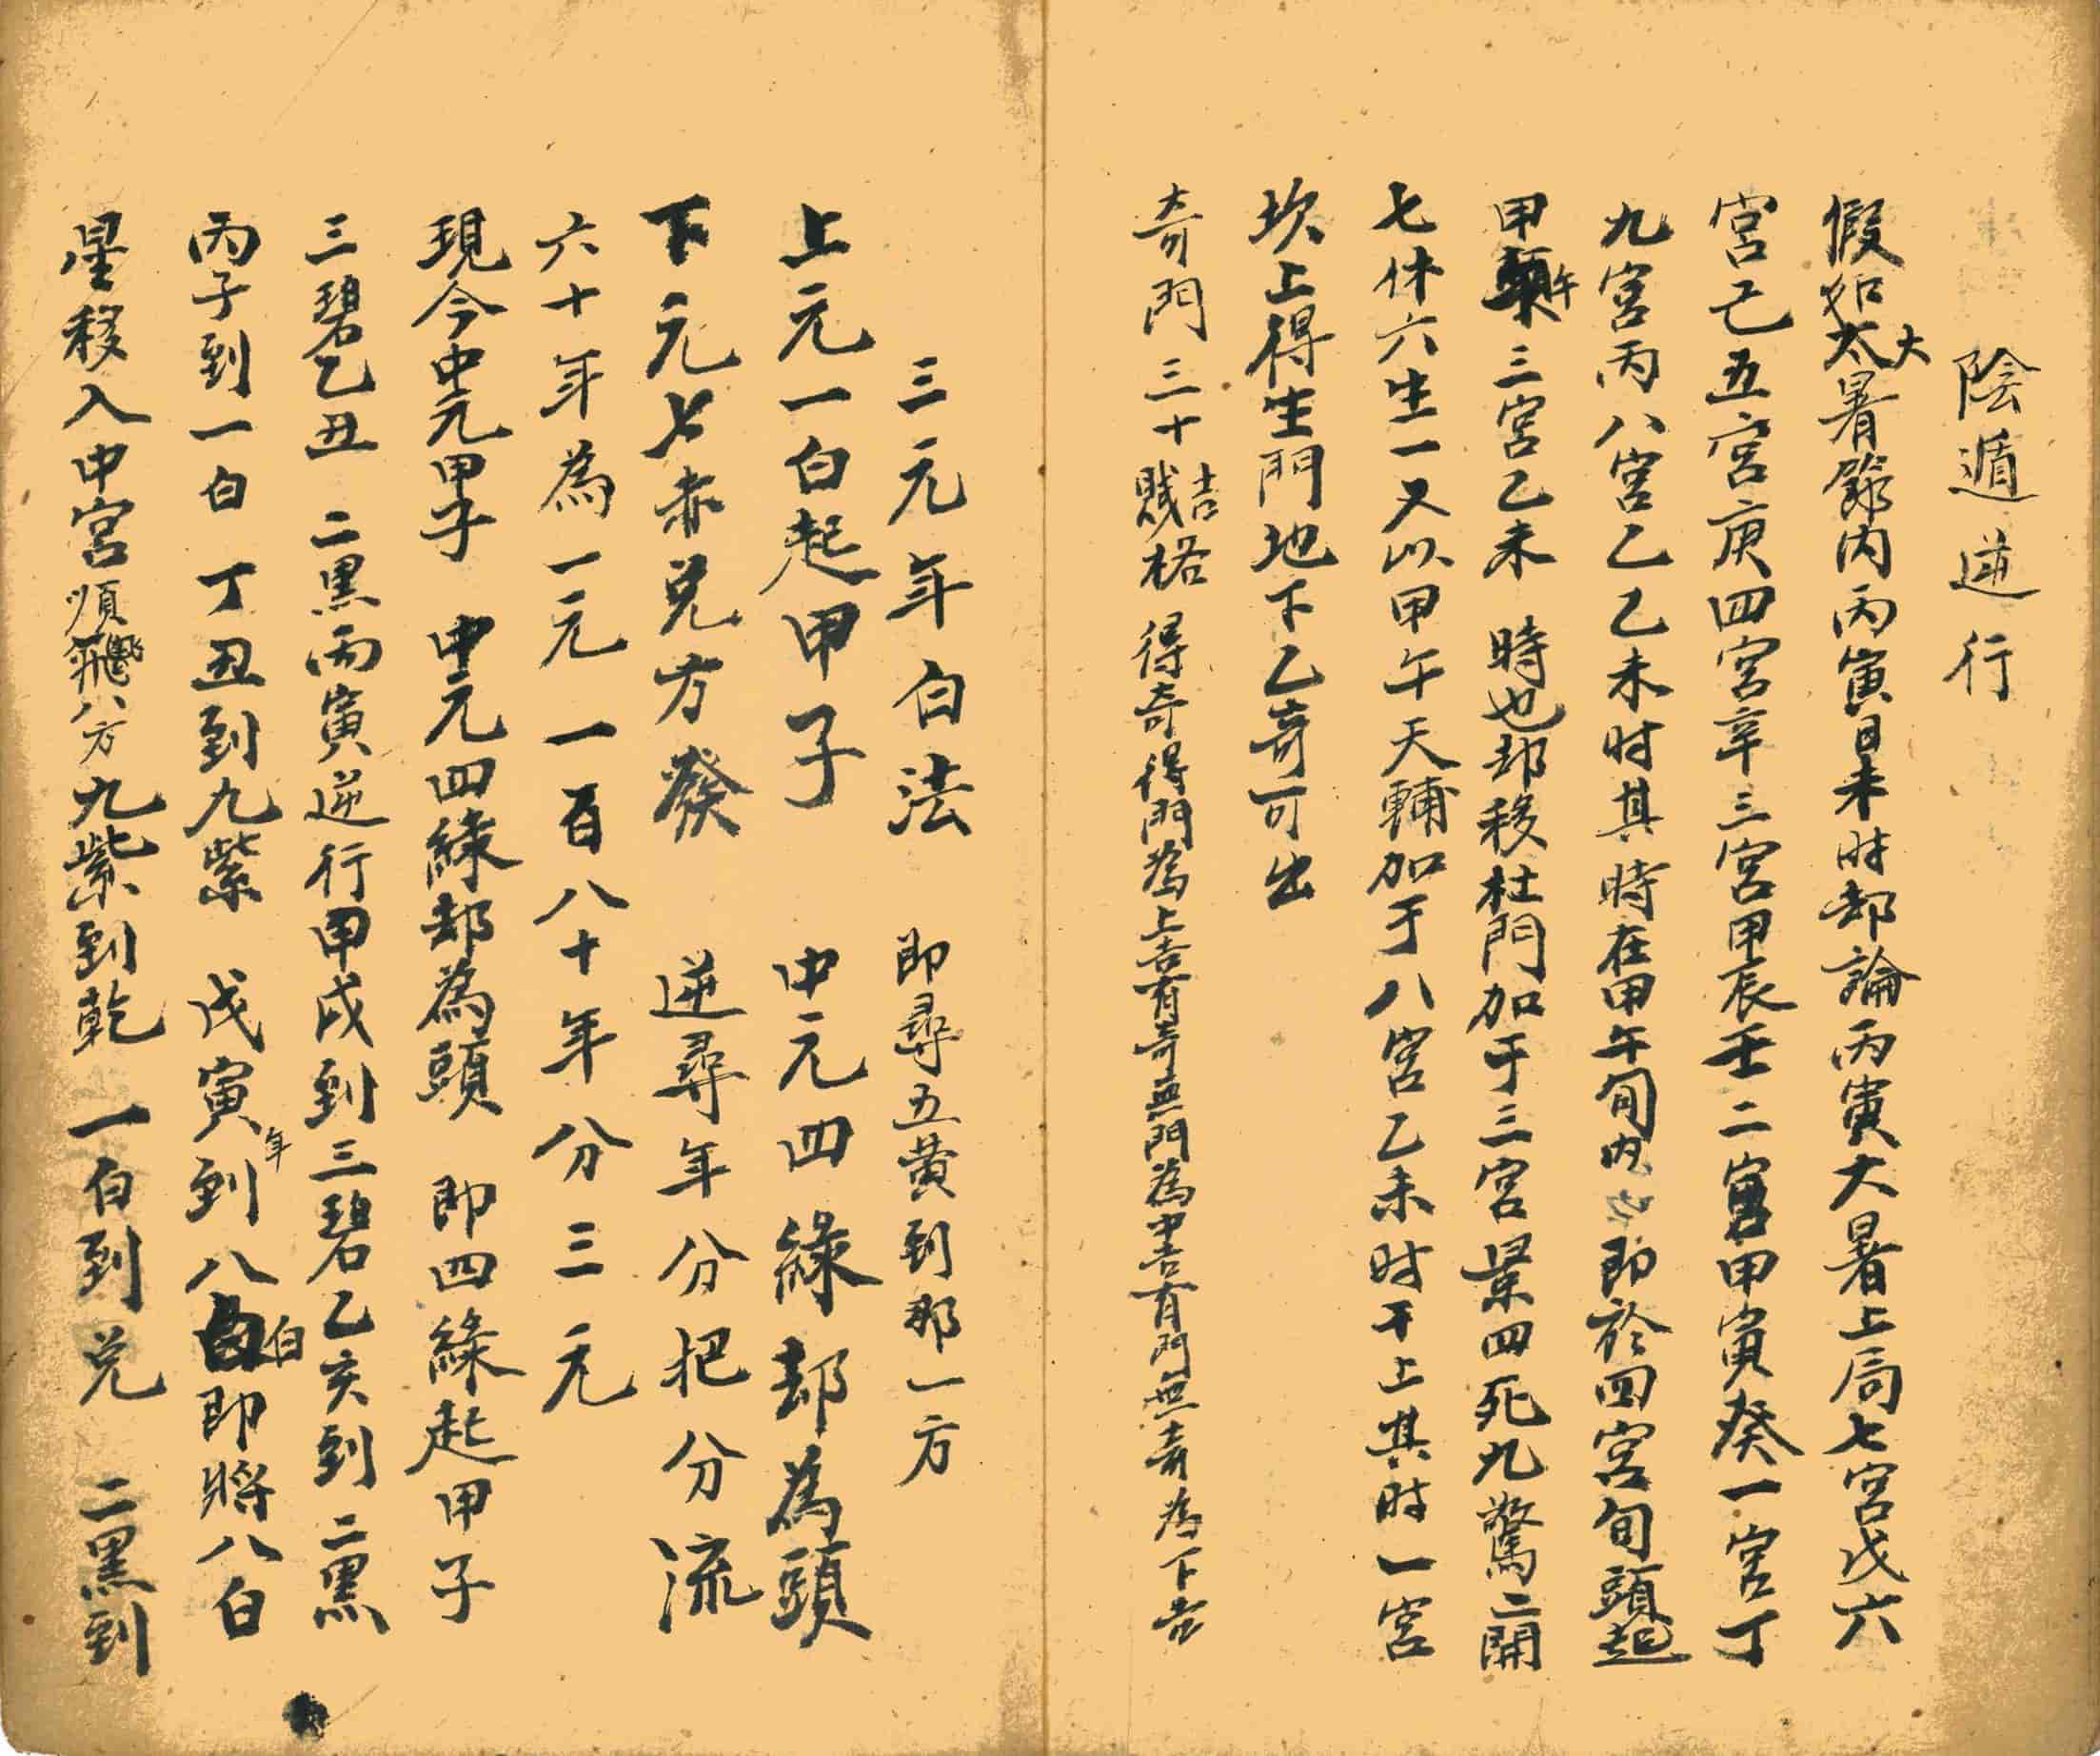 陰遁逆行
假如大暑節內丙寅日未时却論丙寅大暑上局七宮戊六
宮己五宮庚四宮辛三宮甲辰壬二宮甲寅癸一宮丁
九宮丙八宮乙乙未时其時在甲午旬內即於四宮旬頭起
甲午三宮乙未 時也却移杜門加于三宮景四死九驚二開
七休六生一又以甲午天輔加于八宮乙未时干上其时一宮
坎上得生門地下乙奇可出
奇門三十吉格 得奇得門為上吉有奇無門為中吉有門無奇為下吉
三元年白法 即尋五黄到那一方
上元一白起甲子 中元四綠却為頭
下元七赤兌方發 逆尋年分把分流
六十年為一元 一百八十年分三元
現今中元甲子 中元四綠却為頭 即四綠起甲子
三碧乙丑 二黑丙寅逆行甲戌到三碧乙亥到二黑
丙子到一白 丁丑到九紫 戊寅年到八白即將八白
星移入中宮順飛八方九紫到乾 一白到兌 二黑到